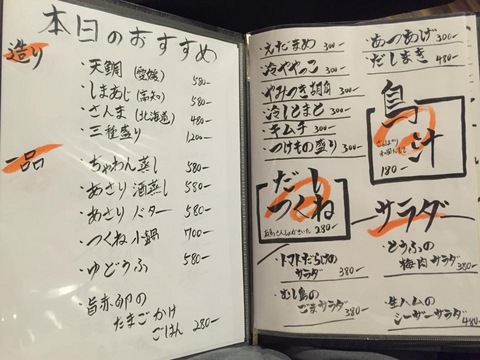 本日のおすすめ
造り
・天鯛(愛媛) 580-
・しまあじ(高知) 580-
・さんま(北海道) 480-
・三種盛り 1,200-
一品
・ちゃわん蒸し 580-
・あさり酒蒸し 580-
・あさりバター 580-
・つくね小鍋 700-
・ゆどうふ 580-
・旨赤卵の
たまごかけ
ごはん 280-
・えだまめ 300-
・冷ややっこ 300-
・やみつき胡瓜 300-
・冷しとまと 300-
・キムチ 300-
・つけもの盛り 300-
・あつあげ 300-
・だしまき 480-
鳥汁
180-
だし
つくね
280-
サラダ
・トマトだらけの
サラダ 380-
・むし鳥の
ごまサラダ 380-
・とうふの
梅肉サラダ 380-
・生ハムの
シーザーサラダ 480-